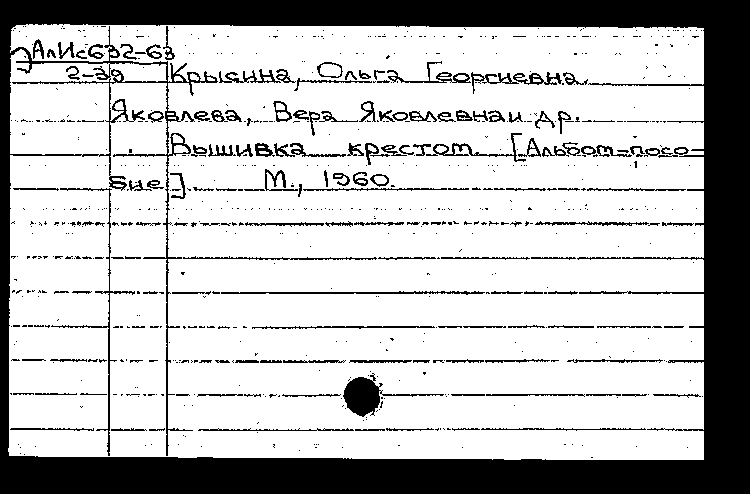 АлИс632-63
2-39
Крысина, Ольга Георгиевна.
Яковлева, Вера Яковлевна и др.
Вышивка крестом. [Альбом-посо-
бие]. М., 1960.